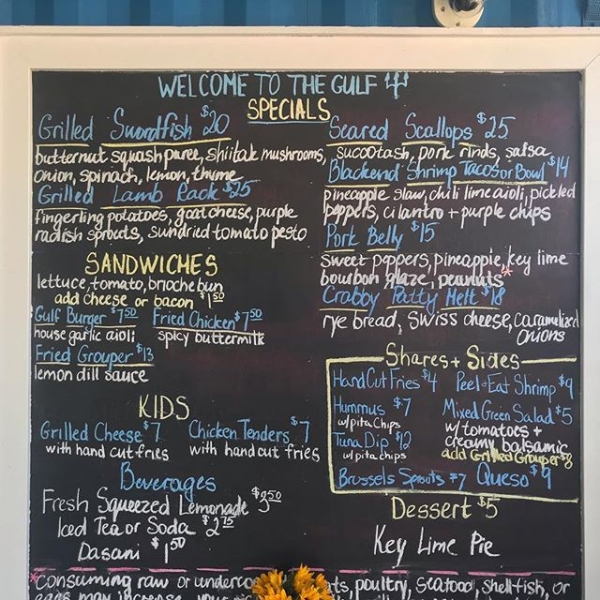 WELCOME TO THE GULF
SPECIALS
Grilled Swordfish $20
butternut squash puree, shiitake mushrooms,
onion, spinach, lemon, thyme
Grilled Lamb Rack $25
fingerling potatoes, goat cheese, purple
radish sprouts, sundried tomato pesto
Seared Scallops $25
succotash, pork rinds, salsa
Blackend Shrimp Tacos or Bowl $14
pineapple slaw, chili lime aioli, pickled
peppers, cilantro + purple chips
Pork Belly $15
sweet peppers, pineapple, key lime
bourbon glaze, peanuts*
Crabby Patty Melt $18
rye bread, swiss cheese, caramelized
onions
SANDWICHES
lettuce, tomato, brioche bun
add cheese or bacon $1.50
Gulf Burger $7.50 Fried Chicken $7.50
house garlic aioli spicy buttermilk
Fried Grouper $13
lemon dill sauce
KIDS
Grilled Cheese $7 Chicken Tenders $7
with hand cut fries with hand cut fries
Beverages
Fresh Squeezed Lemonade $3.50
Iced Tea or Soda $2.75
Dasani $1.50
Shares + Sides
Hand Cut Fries $4 Peel + Eat Shrimp $9
Hummus $7
w/pita chips
Tuna Dip $12
w/pita chips
Mixed Green Salad $5
w/ tomatoes +
creamy balsamic
add Grilled Grouper $8
Brussels Sprouts $7 Queso $9
Dessert $5
Key Lime Pie
*Consuming raw or underco ts, poultry, seafood, shellfish, or
eggs may increase your